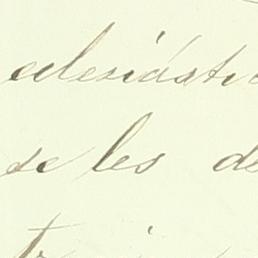 eclesiástic
se les d